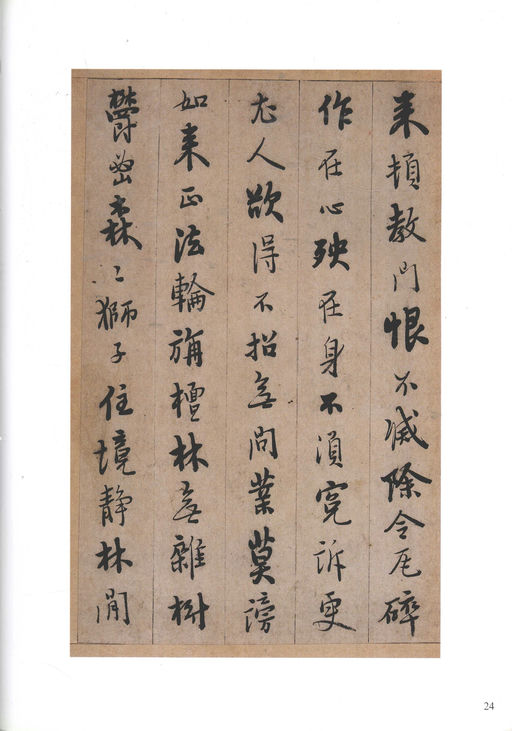 来頓教門恨不滅除令瓦碎
作在心殃在身不湏寃訴更
尤人欲得不招無間業莫謗
如来正法輪旃檀林無雜樹
鬱密森〻獅子住境静林閒
24